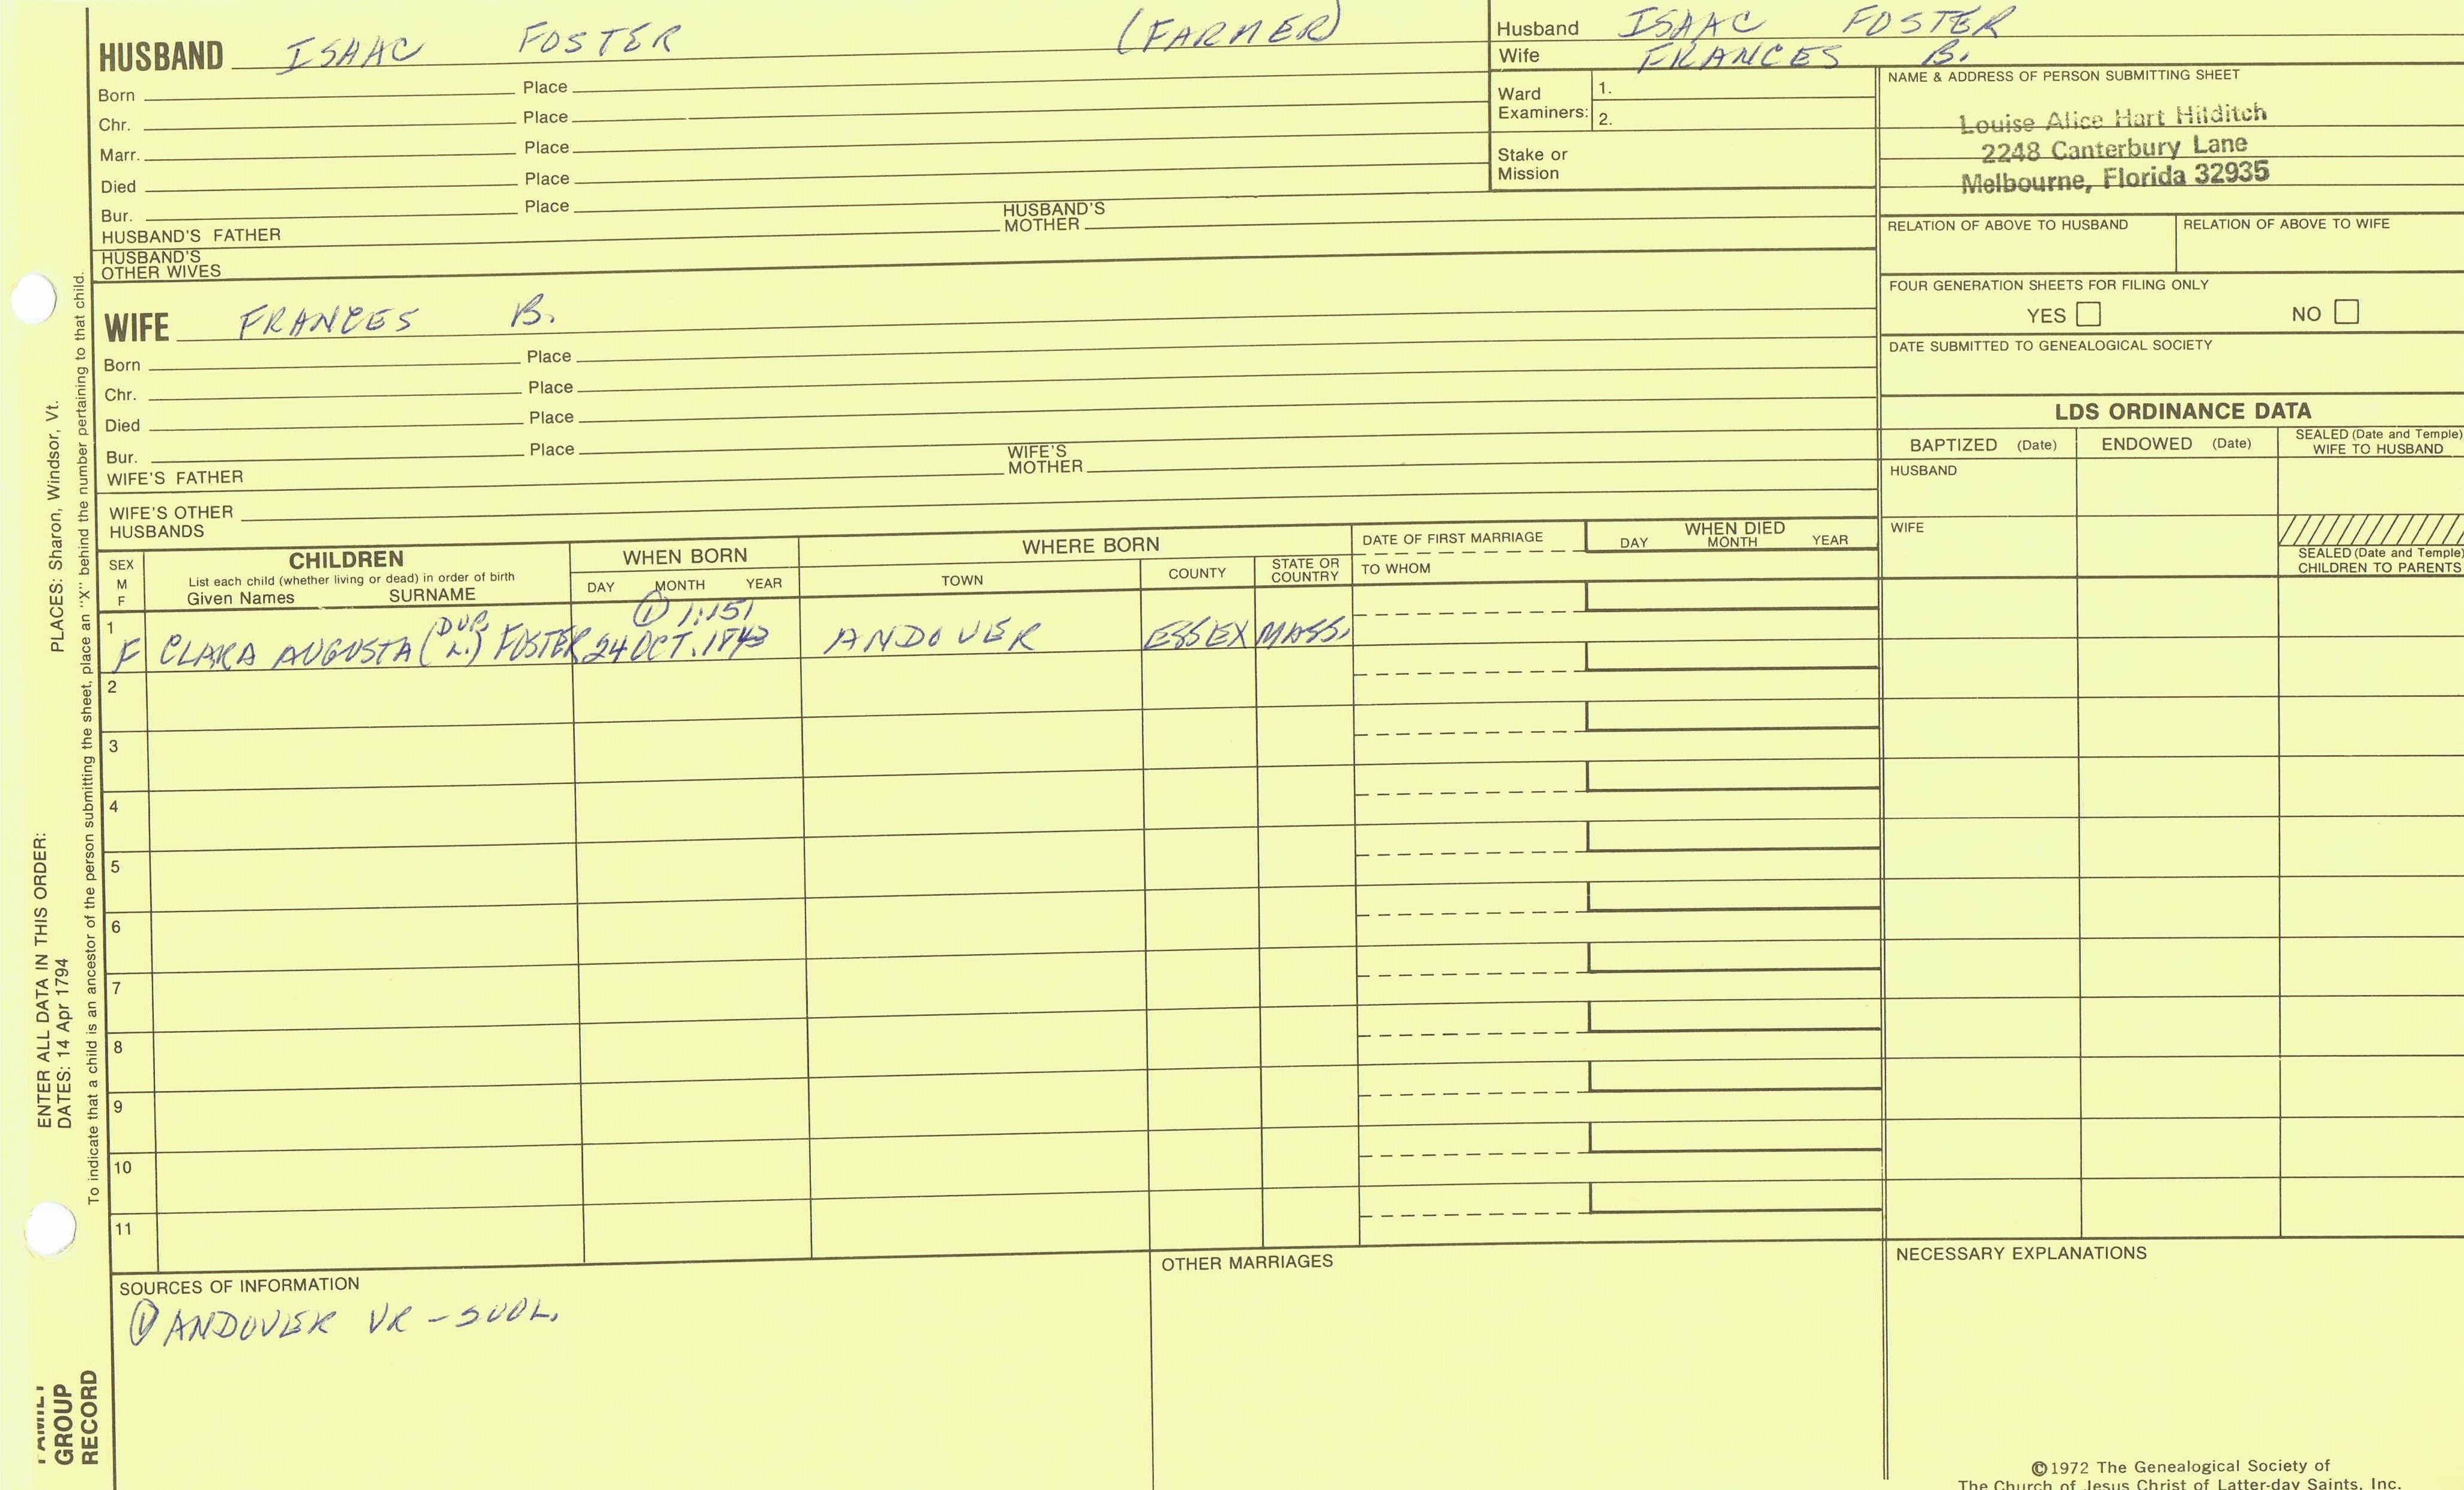 HUSBAND ISAAC FOSTER (FARMER)
Born Place
Chr. Place
Marr. Place
Died Place
Bur. Place
HUSBAND'S FATHER HUSBAND'S MOTHER
HUSBAND'S OTHER WIVES
WIFE FRANCES B.
Born Place
Chr. Place
Died Place
Bur. Place
WIFE'S FATHER WIFE'S MOTHER
WIFE'S OTHER HUSBANDS
Husband ISAAC FOSTER
Wife FRANCES B.
Ward Examiners: 1.
2.
Stake or Mission
NAME & ADDRESS OF PERSON SUBMITTING SHEET
Louise Alice Hart Hilditch
2248 Canterbury Lane
Melbourne, Florida 32935
RELATION OF ABOVE TO HUSBAND RELATION OF ABOVE TO WIFE
FOUR GENERATION SHEETS FOR FILING ONLY
YES NO
DATE SUBMITTED TO GENEALOGICAL SOCIETY
LDS ORDINANCE DATA
BAPTIZED (Date) ENDOWED (Date) SEALED (Date and Temple) WIFE TO HUSBAND
HUSBAND
WIFE
SEALED (Date and Temple) CHILDREN TO PARENTS
SEX M F
CHILDREN
List each child (whether living or dead) in order of birth
Given Names SURNAME
WHEN BORN
DAY MONTH YEAR
WHERE BORN
TOWN COUNTY STATE OR COUNTRY
DATE OF FIRST MARRIAGE
TO WHOM
WHEN DIED
DAY MONTH YEAR
① 1:151
1 F CLARA AUGUSTA (DUP. L.) FOSTER 24 OCT. 1843 ANDOVER ESSEX MASS.
2
3
4
5
6
7
8
9
10
11
SOURCES OF INFORMATION
① ANDOVER VR
OTHER MARRIAGES
NECESSARY EXPLANATIONS
©1972 The Genealogical Society of
The Church of Jesus Christ of Latter-day Saints, Inc.
ENTER ALL DATA IN THIS ORDER:
DATES: 14 Apr 1794 PLACES: Sharon, Windsor, Vt.
To indicate that a child is an ancestor of the person submitting the sheet, place an "X" behind the number pertaining to that child.
FAMILY
GROUP
RECORD